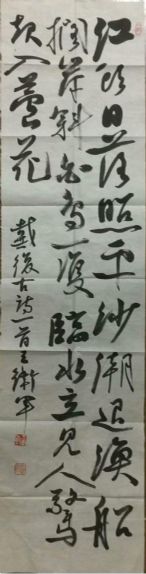 江頭日落照平沙潮退漁船
擱岸斜白鳥一雙臨水立見人驚
起入蘆花
戴復古詩一首王衛軍